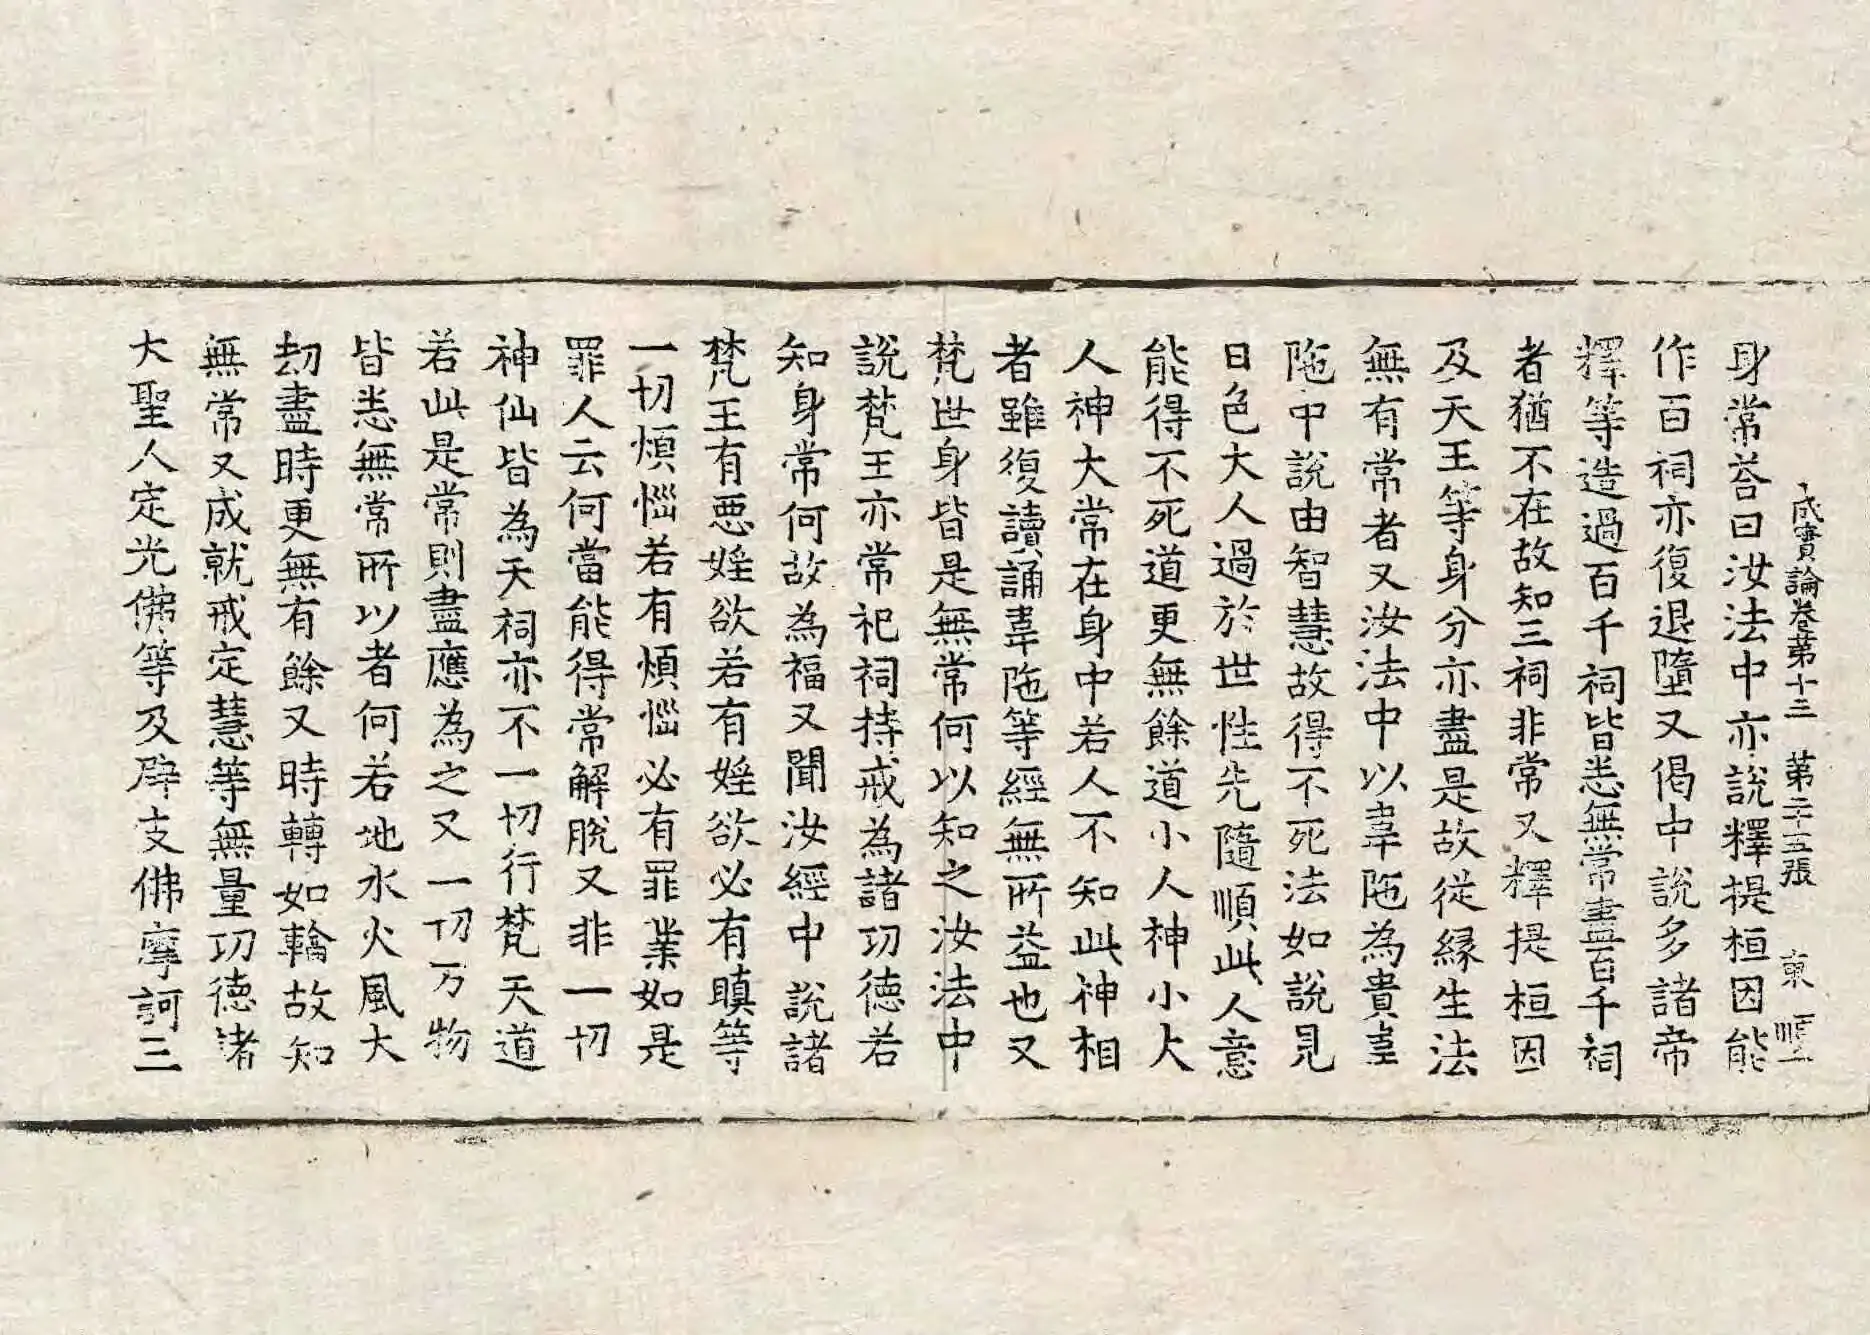 成實論卷第十三 第二十五張 東 順一
身常荅曰汝法中亦說釋提桓因能
作百祠亦復退墮又偈中說多諸帝
釋等造過百千祠皆悉無常盡百千祠
者猶不在故知三祠非常又釋提桓因
及天王等身分亦盡是故從緣生法
無有常者又汝法中以韋陁為貴韋
陁中說由智慧故得不死法如說見
日色大人過於世性先隨順此人意
能得不死道更無餘道小人神小大
人神大常在身中若人不知此神相
者雖復讀誦韋陁等經無所益也又
梵世身皆是無常何以知之汝法中
說梵王亦常祀祠持戒為諸功德若
知身常何故為福又聞汝經中說諸
梵王有惡婬欲若有婬欲必有瞋等
一切煩惱若有煩惱必有罪業如是
罪人云何當能得常解脫又非一切
神仙皆為天祠亦不一切行梵天道
若此是常則盡應為之又一切万物
皆悉無常所以者何若地水火風大
劫盡時更無有餘又時轉如輪故知
無常又成就戒定慧等無量功德諸
大聖人定光佛等及辟支佛摩訶三